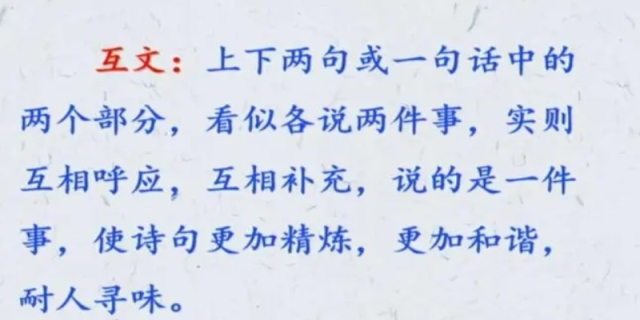 互文：上下两句或一句话中的
两个部分，看似各说两件事，实则
互相呼应，互相补充，说的是一件
事，使诗句更加精炼，更加和谐，
耐人寻味。